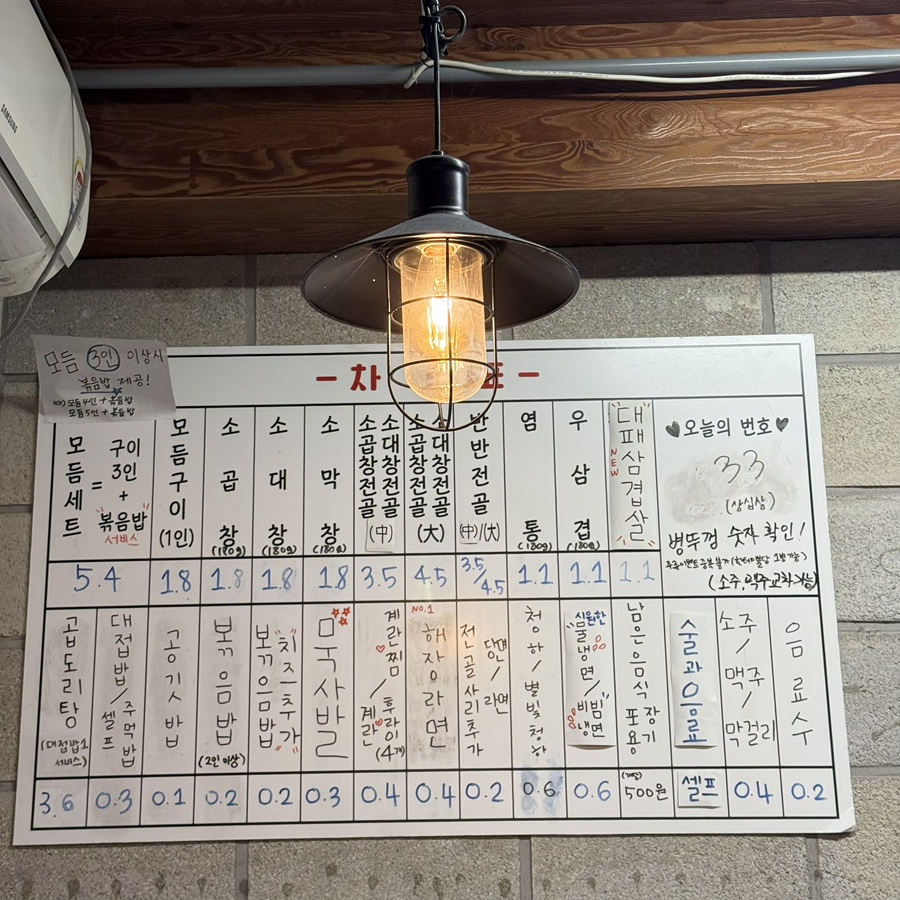 SAMSUNG
모듬 3인 이상시
볶음밥 제공!
ex) 모듬4인 + 볶음밥
모듬5인 + 볶음밥
- 차 표 -
모듬세트 = 구이 3인 + 볶음밥 서비스
모듬구이 (1인)
소곱창 (180g)
소대창 (180g)
소막창 (180g)
소곱창전골 소대창전골 (中)
소곱창전골 소대창전골 (大)
반반전골 (中)/(大)
염통 (180g)
우삼겹 (180g)
대패삼겹살 NEW
♥오늘의 번호♥
33
(삼십삼)
병뚜껑 숫자 확인!
(소주, 맥주 교환가능)
5.4
1.8
1.8
1.8
1.8
3.5
4.5
3.5/4.5
1.1
1.1
1.1
곱도리탕 (대접밥소 서비스)
대접밥/셀프 주먹밥
공깃밥
볶음밥 (2인 이상)
볶음밥 치즈추가
묵사발
계란찜/계란후라이(4개)
NO.1 해장라면
전골사리추가 당면/라면
청하/별빛청하
시원한 물냉면/비빔냉면
남은음식 포장용기
술과음료
소주/맥주/막걸리
음료수
3.6
0.3
0.1
0.2
0.2
0.3
0.4
0.4
0.2
0.6
0.6
(개당) 500원
셀프
0.4
0.2